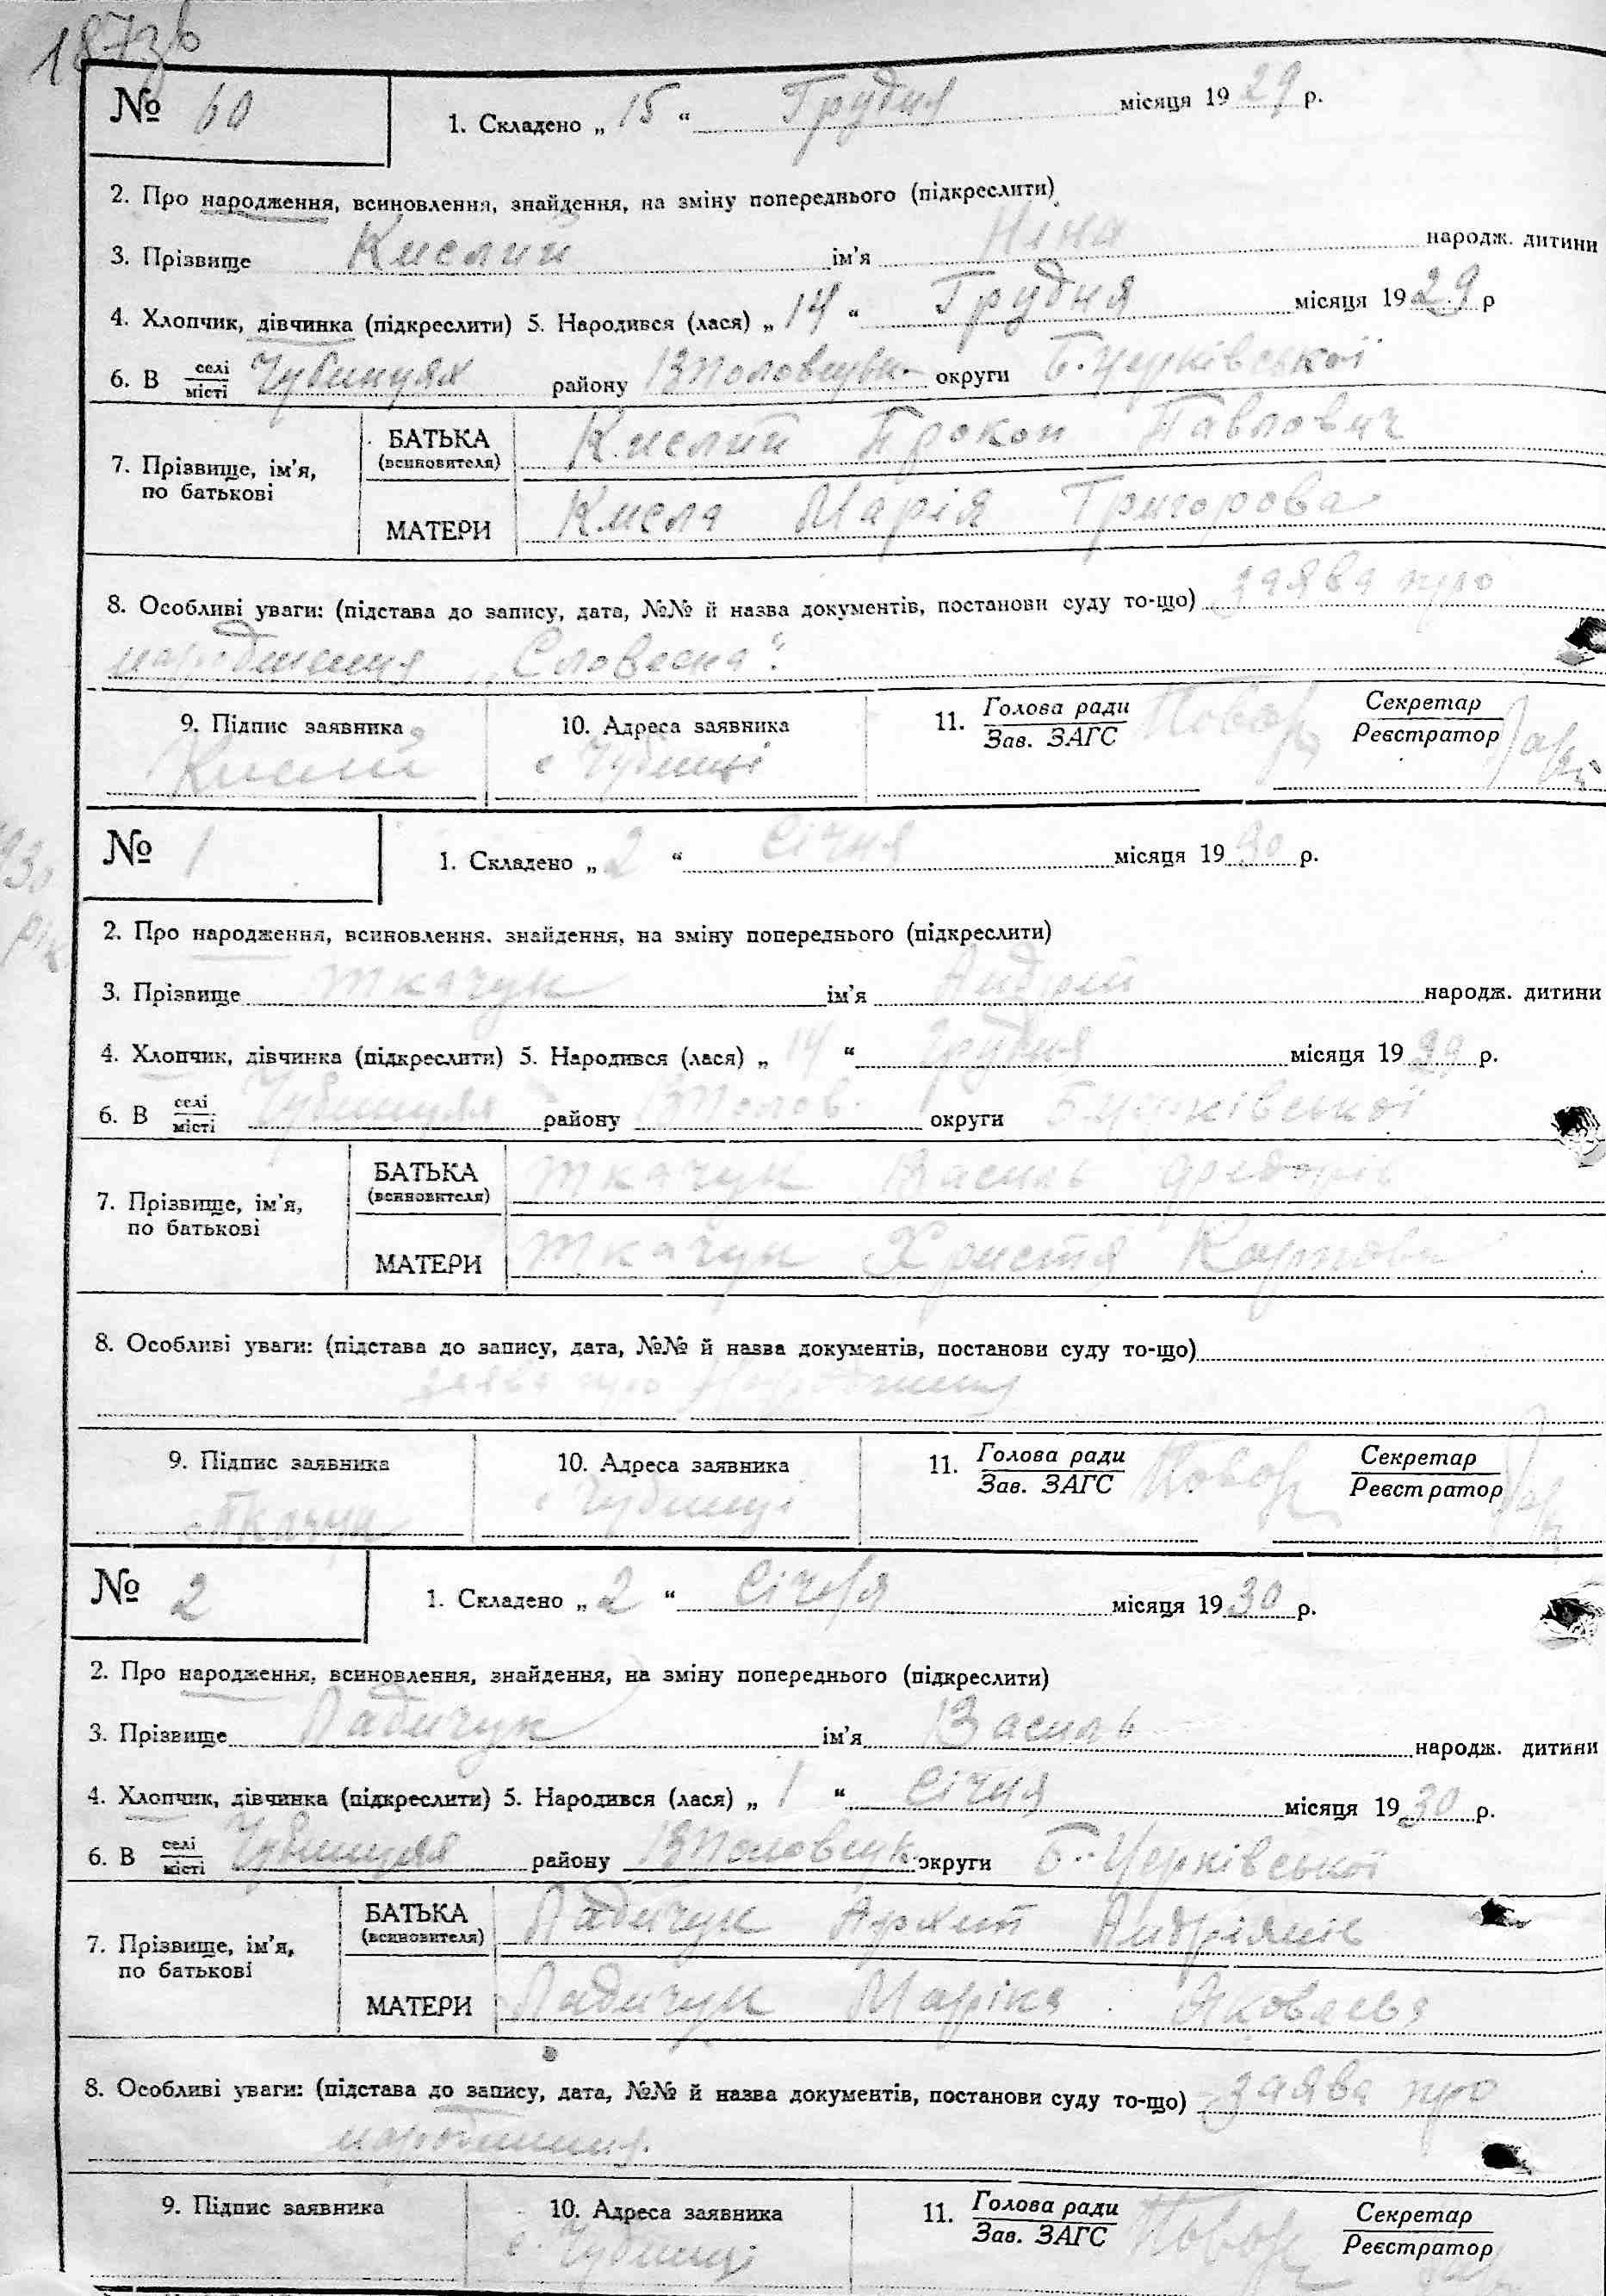 1873б
№ 60
1. Складено „ 15 “ Грудня місяця 1929 р.
2. Про народження, всиновлення, знайдення, на зміну попереднього (підкреслити)
3. Прізвище Кислий ім'я Ніна народж. дитини
4. Хлопчик, дівчинка (підкреслити) 5. Народився (лася) „ 14 “ Грудня місяця 1929 р
6. В селі/місті Чубинцях району ВПоловецьк. округи Б.Церківської
7. Прізвище, ім'я, по батькові
БАТЬКА (всиновителя) Кислий Прокоп Павлович
МАТЕРИ Кисла Марія Григорова
8. Особливі уваги: (підстава до запису, дата, №№ й назва документів, постанови суду то-що) заява про
народження „Словесна".
9. Підпис заявника 10. Адреса заявника 11. Голова ради/Зав. ЗАГС Секретар/Реєстратор
Кислий с Чубинці
№ 1
1. Складено „ 2 “ Січня місяця 1930 р.
2. Про народження, всиновлення, знайдення, на зміну попереднього (підкреслити)
3. Прізвище Ткачук ім'я Андрій народж. дитини
4. Хлопчик, дівчинка (підкреслити) 5. Народився (лася) „ 14 “ Грудня місяця 1929 р.
6. В селі/місті Чубинцях району ВПолов. округи Б.Церківської
7. Прізвище, ім'я, по батькові
БАТЬКА (всиновителя) Ткачук Василь Федорів
МАТЕРИ Ткачук Христя Карпова
8. Особливі уваги: (підстава до запису, дата, №№ й назва документів, постанови суду то-що)
заява про народження
9. Підпис заявника 10. Адреса заявника 11. Голова ради/Зав. ЗАГС Секретар/Реєстратор
Ткачук с Чубинці
№ 2
1. Складено „ 2 “ Січня місяця 1930 р.
2. Про народження, всиновлення, знайдення, на зміну попереднього (підкреслити)
3. Прізвище Ладичук ім'я Василь народж. дитини
4. Хлопчик, дівчинка (підкреслити) 5. Народився (лася) „ 1 “ Січня місяця 1930 р.
6. В селі/місті Чубинцях району ВПоловецьк. округи Б.-Церківської
7. Прізвище, ім'я, по батькові
БАТЬКА (всиновителя) Ладичук Архип Андріянів
МАТЕРИ Ладичук Маріка Яковлева
8. Особливі уваги: (підстава до запису, дата, №№ й назва документів, постанови суду то-що) заява про
народження.
9. Підпис заявника 10. Адреса заявника 11. Голова ради/Зав. ЗАГС Секретар/Реєстратор
с. Чубинці